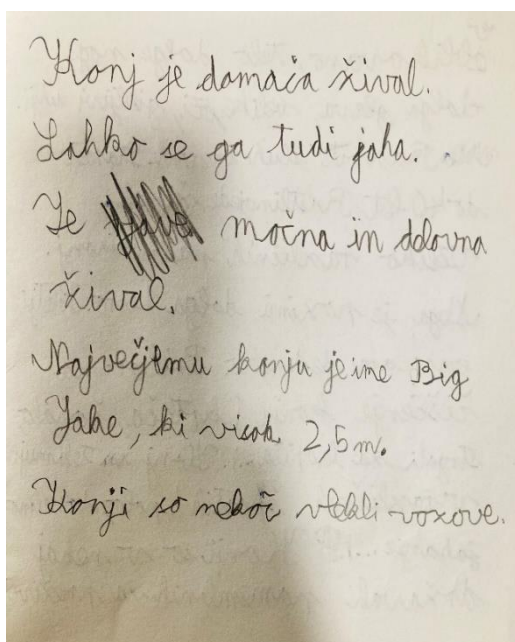 Konj je domača žival.
Lahko se ga tudi jaha.
Je močna in delovna
žival.
Največjemu konju je ime Big
Jake, ki visok 2,5 m.
Konji so nekoč vlekli vozove.